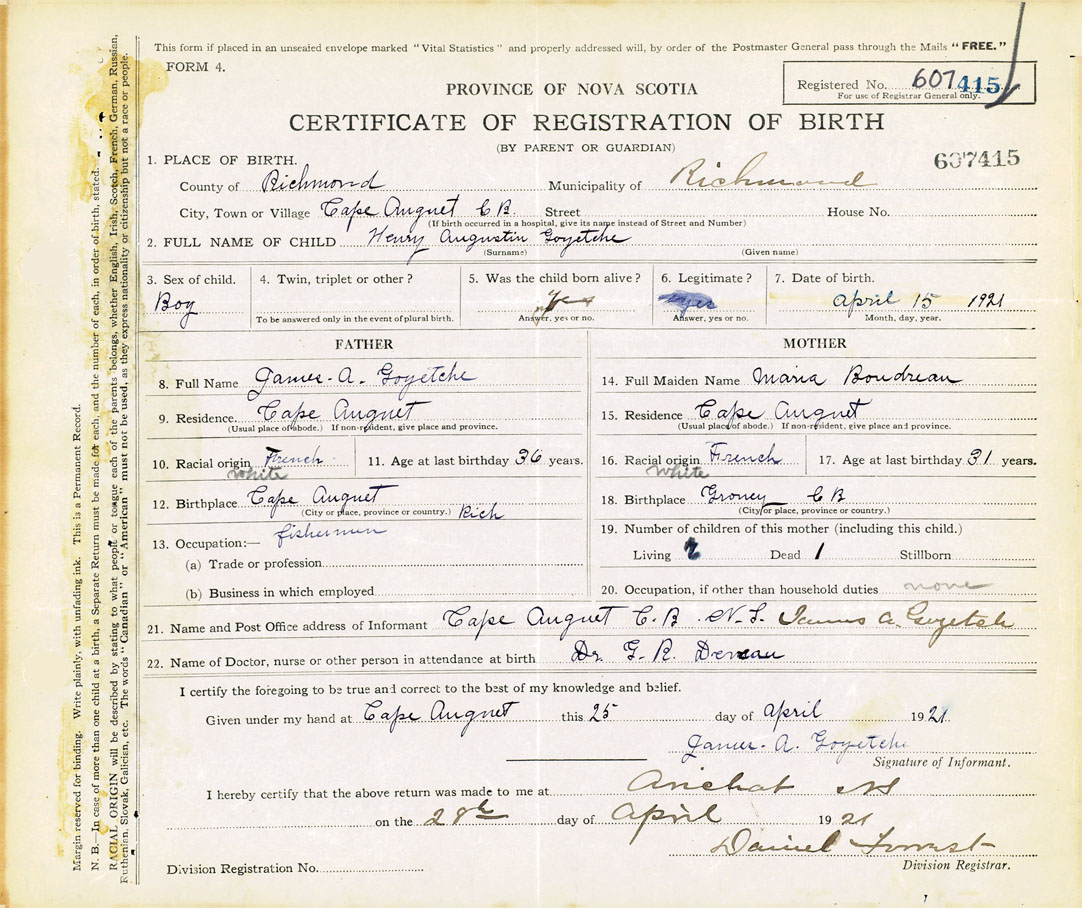 This form if placed in an unsealed envelope marked "Vital Statistics" and properly addressed will, by order of the Postmaster General pass through the Mails "FREE."
FORM 4.
Registered No. 607415
For use of Registrar General only.
PROVINCE OF NOVA SCOTIA
CERTIFICATE OF REGISTRATION OF BIRTH
(BY PARENT OR GUARDIAN)
607415
1. PLACE OF BIRTH.
County of Richmond Municipality of Richmond
City, Town or Village Cape Auguet C B. Street House No.
(If birth occurred in a hospital, give its name instead of Street and Number)
2. FULL NAME OF CHILD Henry Augustin Goyetche
(Surname) (Given name)
3. Sex of child. 4. Twin, triplet or other? 5. Was the child born alive? 6. Legitimate? 7. Date of birth.
Boy Yes yes april 15 1921
To be answered only in the event of plural birth. Answer, yes or no. Answer, yes or no. Month, day, year.
FATHER
8. Full Name James. A. Goyetche
9. Residence. Cape Auguet
(Usual place of abode.) If non-resident, give place and province.
10. Racial origin French 11. Age at last birthday 36 years.
White
12. Birthplace Cape Auguet
(City or place, province or country.) Rich
13. Occupation:— fishermen
(a) Trade or profession
(b) Business in which employed
MOTHER
14. Full Maiden Name Maria Boudreau
15. Residence Cape Auguet
(Usual place of abode.) If non-resident, give place and province.
16. Racial origin French 17. Age at last birthday 31 years.
White
18. Birthplace C B
(City or place, province or country.)
19. Number of children of this mother (including this child.)
Living Dead 1 Stillborn
20. Occupation, if other than household duties none
21. Name and Post Office address of Informant Cape Auguet C. B. N. S. James A. Goyetch
22. Name of Doctor, nurse or other person in attendance at birth Dr. G. R. Deveau
I certify the foregoing to be true and correct to the best of my knowledge and belief.
Given under my hand at Cape Auguet this 25 day of april 1921.
James. A. Goyetche
Signature of Informant.
I hereby certify that the above return was made to me at Arichat NS
on the 28th day of April 1921
Daniel Forrest
Division Registrar.
Division Registration No.
Margin reserved for binding. Write plainly, with unfading ink. This is a Permanent Record.
N. B.—In case of more than one child at a birth, a Separate Return must be made for each, and the number of each, in order of birth, stated.
RACIAL ORIGIN will be described by stating to what people or tongue each of the parents belongs, whether English, Irish, Scotch, French, German, Russian,
Ruthenian, Slovak, Galician, etc. The words "Canadian" or "American" must not be used, as they express nationality or citizenship but not a race or people.